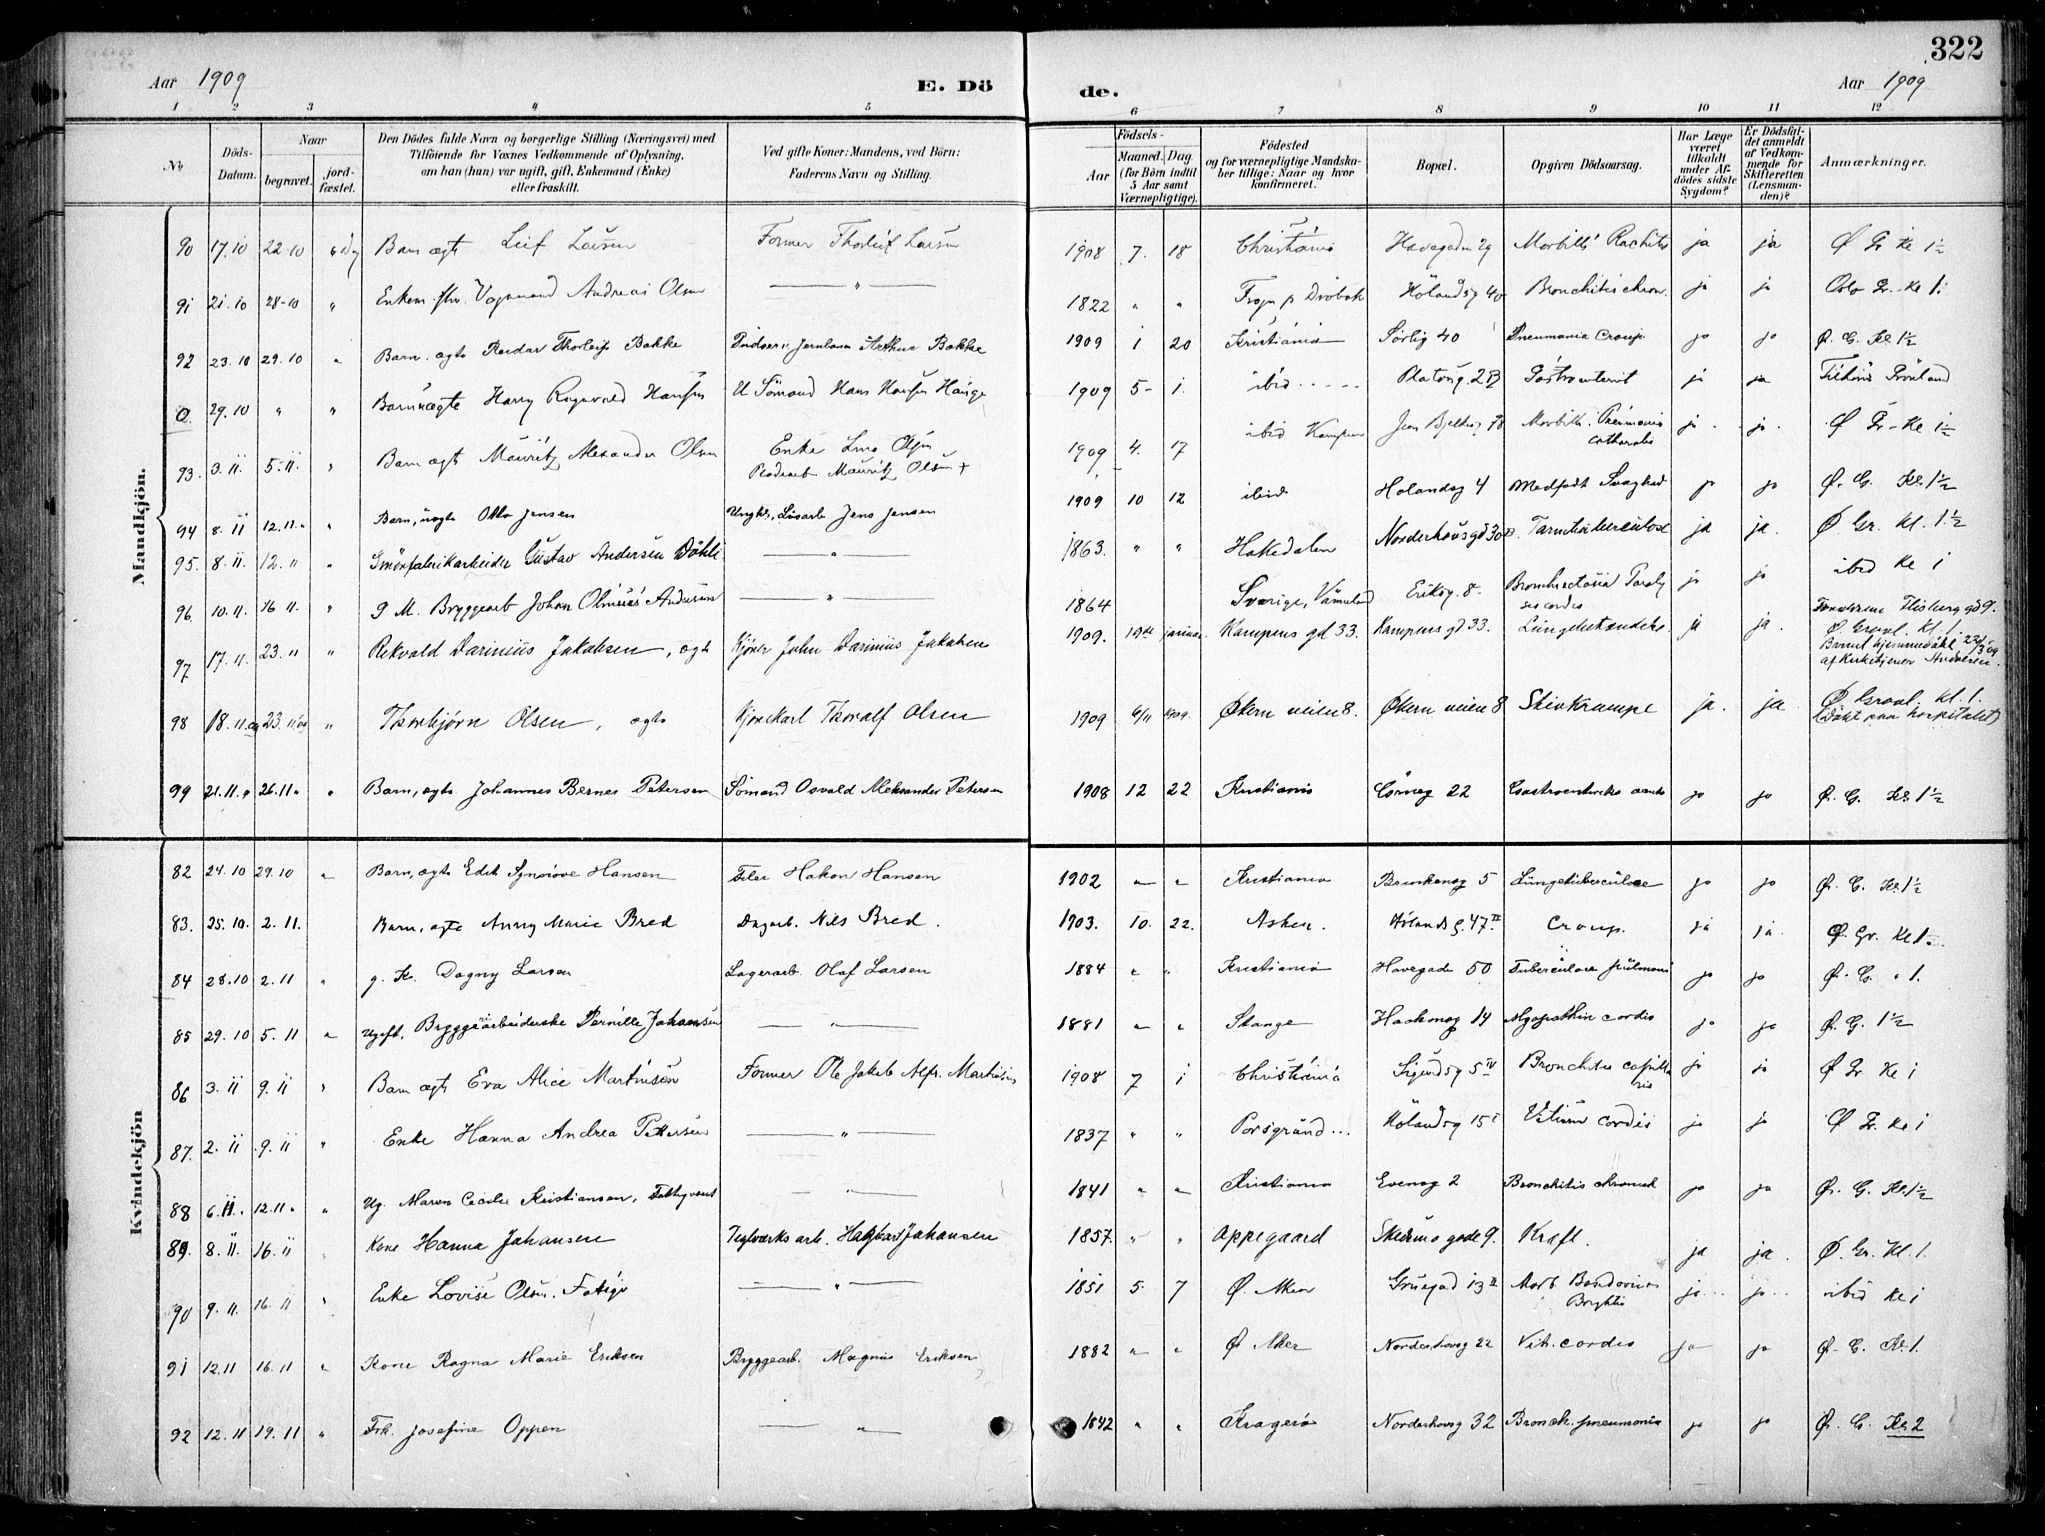 322
Aar 1909 E. Dö de. Aar 1909
1 2 3 4 5 6 7 8 9 10 11 12
No Döds-Datum. Naar begravet. jord-fæstet. Den Dödes fulde Navn og borgerlige Stilling (Næringsvei) med Tilföiende for Voxnes Vedkommende af Oplysning, om han (hun) var ugift, gift, Enkemand (Enke) eller fraskilt. Ved gifte Koner: Mandens, ved Börn: Faderens Navn og Stilling. Födsels- Aar Maaned. Dag. (for Börn indtil 5 Aar samt Værnepligtige). Födested og for værnepligtige Mandskaber tillige: Naar og hvor konfirmeret. Bopæl. Opgiven Dödsaarsag. Har Læge været tilkaldt under Afdödes sidste Sygdom? Er Dödsfaldet anmeldt af Vedkommende for Skifteretten (Lensmanden)? Anmærkninger.
Mandkjön.
90 17.10 22.10 Barn ægt Leif Larsen Former Thorleif Larsen 1908 7. 18 Christiania Havegaden 29 Morbilli Rachitis ja ja Ø Gr Kl 1½
91 21.10 28-10 " Enkem. fhv. Vognmand Andreas Olsen — " — 1822 " " Frogn p Drøbak Hölandsg 40 Bronchitis chron. ja ja Oslo Gr. Kl 1.
92 23.10 29.10 " Barn. ægte Reidar Thorleif Bakke Arthur Bakke 1909 1 20 Kristiania Sørlig 40 Pneumonia Croup ja ja Ø. G. Kl 1½
0. 29.10 " " Barn uægte Harry Ragnvald Hansen U Sömand Hans Hansen Hauge 1909 5- 1. ibid Platousg. 2B Gastroenterit ja ja Grönland
93. 3.11 5.11. " Barn ægt Mauritz Alexander Olsen Enke Olsen Mauritz Olsen + 1909 4. 17 ibid Kampen Jens Bjelkesg 78 Morbilli. catharalis ja ja. Ø Gr- Kl 1½
94 8.11 12.11. " Barn, uægte Otto Jensen Ungk., Løsarb Jens Jensen 1909 10 12 ibid Holandsg 4 Medfødt Svaghed ja ja Ø. G. Kl 1½
95. 8.11 12.11 " Smörfabrikarbeider Gustav Andersen Döhli — " — 1863. " " Hakedalen Norderhovsgd 30 Tarmtuberculose ja ja. Ø Gr. Kl. 1.½
96 10.11. 16 11. " g M. Bryggearb Johan Olmius Andersen — " — 1864 Sverige, Värmland Eriksg. 8- cordis ja ja ibid Kl 1
97 17.11. 23.11 " Rikvald Darinius Jakobsen, ægt Kjører John Darinius Jakobsen 1909. januar Kampens gd 33. Kampens gd 33. Lungebetændelse. ja ja. Flisberg gd 9. Ø. Gravl. Kl. 1. af Kirketjener Andresen.
98 18.11.09 23.11.09 " Thorbjørn Olsen, ægte Kjørekarl Thoralf Olsen 1909 6/11 1909. Økern veien 8. Økern veien 8 Stivkrampe ja. ja Ø Gravl. Kl. 1. (Døbt paa hospitalet)
99 21.11. 26.11 " Barn, ægte Johannes Bernes Petersen Sömand Osvald Aleksander Petersen 1908 12 22 Kristiania 22 Gastroenterite ja ja Ø. G. Kl 1½
Kvindekjön
82 24.10 29.10 " Barn, ægte Edit Synnöve Hansen Filer Hakon Hansen 1902 " " Kristiania 5 Lungetuberculose ja ja Ø. G. Kl 1½
83. 25.10. 2.11. Barn, ægte Anny Marie Bred Dagarb. Nils Bred. 1903. 10. 22. Asker. Hölands g. 47 II Croup. ja ja Ø. Gr. Kl 1.
84 28.10 2.11 " g. K. Dagny Larsen Lagerarb. Olaf Larsen 1884 " " Kristiania Havegade 50 Tuberculose pulmonis ja ja Ø. G. " 1.
85 29.10 5.11 " Ugift. Bryggeriarbeiderske Pernille Johansen — " — 1881 " " Stange Haakonsg 14 Myopathia cordis ja ja Ø. G. 1½
86 3.11 9.11 " Barn ægt Eva Alice Martinsen Former Ole Jakob Alfr. Martinsen 1908 7 1 Christiania Sigurdsg 5 IV Bronchitis capillaris ja ja Ø Gr Kl 1
87. 2.11 9.11 " Enke Hanna Andrea Pettersen — " — 1837 " " Porsgrund... Hölandsg 15 I Vitium cordis ja ja Ø Gr. Kl 1
88 6.11. 12.11. " Ug. Maren Cecilie Kristiansen, — " — 1841 " " Kristiania Evensg 2 Bronchitis kronisk ja ja Ø. G. Kl 1½
89. 8.11. 16.11 " Kone Hanna Johansen Teglværksarb. Hagbart Johansen 1857. " " Oppegaard Skedsmo gade 9. Kræft. ja ja. Ø. Gr. Kl. 1.
90 9.11. 16.11 " Enke Lovise Olsen. — " — 1851 5. 7 Ø. Aker Gruegad 13 II Morb Brightii ja ja ibid Kl 1
91 12.11 16.11 " Kone Ragna Marie Eriksen Bryggearb. Magnus Eriksen 1882 " " Ø Aker Norderhovsg 22 Vit. cordis ja ja Ø. G. Kl 1.
92 12.11 19.11 " Frk. Josefine Oppen — " — 1842 " " Kragerø Norderhovsg 32 Bronch. pneumonia ja ja Ø. G. Kl 2